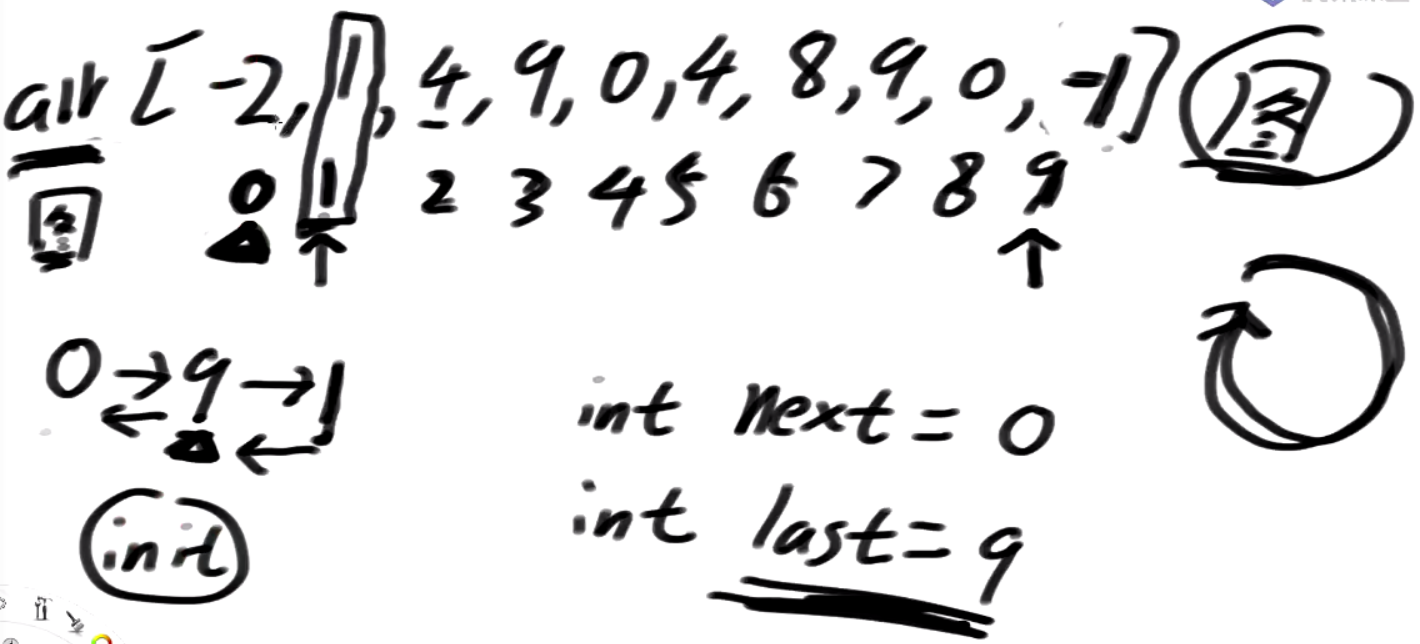 arr [ -2, 1, 4, 9, 0, 4, 8, 9, 0, -1] 图
图 0 1 2 3 4 5 6 7 8 9
0 → 9 → 1
int next = 0
init
int last = 9